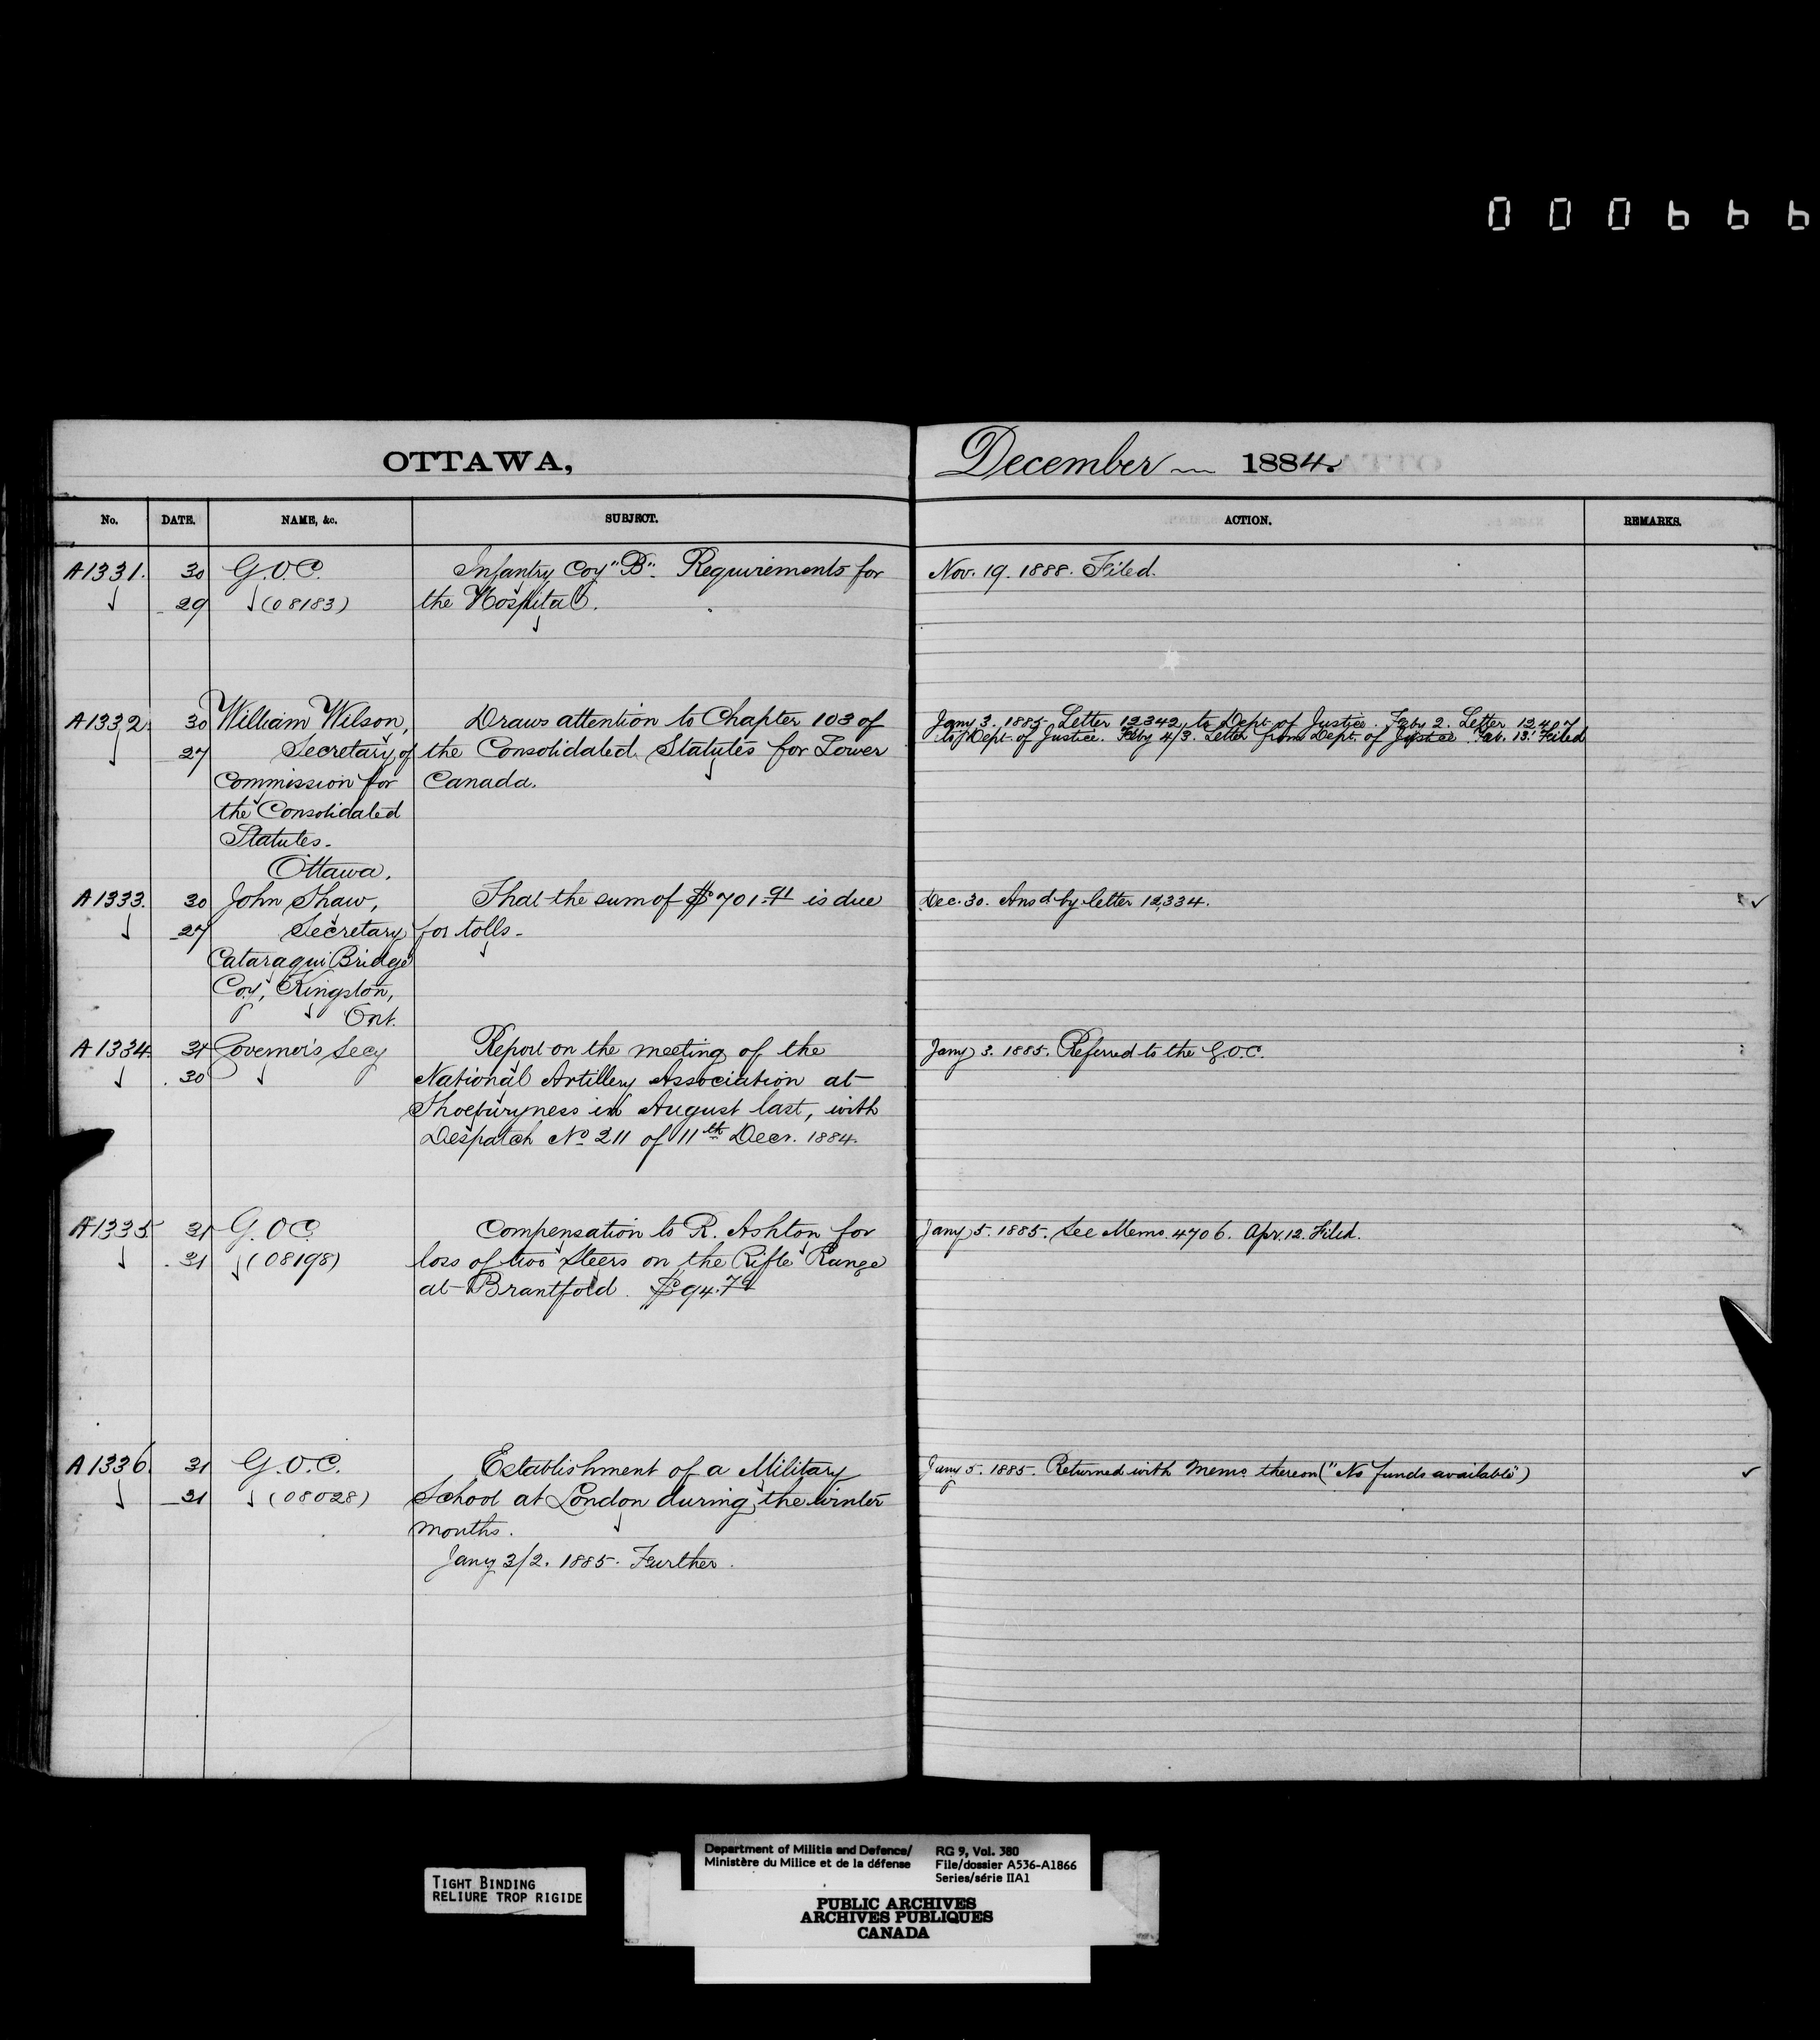 000666
OTTAWA,
December 1884.
No. DATE. NAME, &c. SUBJECT. ACTION. REMARKS.
A1331. 30 G.O.C. Infantry Coy "B". Requirements for Nov. 19. 1888. Filed.
29 (08183) the Hospital.
A1332. 30 William Wilson, Draws attention to Chapter 103 of Jany 3. 1885, Letter 12342, to Dept. of Justice. Feby 2. Letter 12407
27 Secretary of the Consolidated Statutes for Lower to Dept. of Justice. Feby 4/3. Letter from Dept. of Justice. Feb. 13. Filed
Commission for Canada.
the Consolidated
Statutes.
Ottawa.
A1333. 30 John Shaw, That the sum of $701.91 is due Dec. 30. Ansd by letter 12,334.
27 Secretary for tolls.
Cataraqui Bridge
Coy, Kingston,
Ont.
A1334. 31 Governor's Secy Report on the meeting of the Jany 3. 1885. Referred to the G.O.C.
30 National Artillery Association at
Shoeburyness in August last, with
Despatch No 211 of 11th Decr. 1884.
A1335 31 G.O.C. Compensation to R. Ashton for Jany 5. 1885. See Memo. 4706. Apr. 12. Filed.
31 (08198) loss of two steers on the Rifle Range
at Brantford. $94.79
A1336. 31 G.O.C. Establishment of a Military Jany 5. 1885. Returned with Memo thereon ("No funds available")
31 (08028) School at London during the winter
months.
Jany 3/2. 1885. Further.
TIGHT BINDING
RELIURE TROP RIGIDE
Department of Militia and Defence/ RG 9, Vol. 380
Ministère du Milice et de la défense File/dossier A536-A1866
Series/série IIA1
PUBLIC ARCHIVES
ARCHIVES PUBLIQUES
CANADA